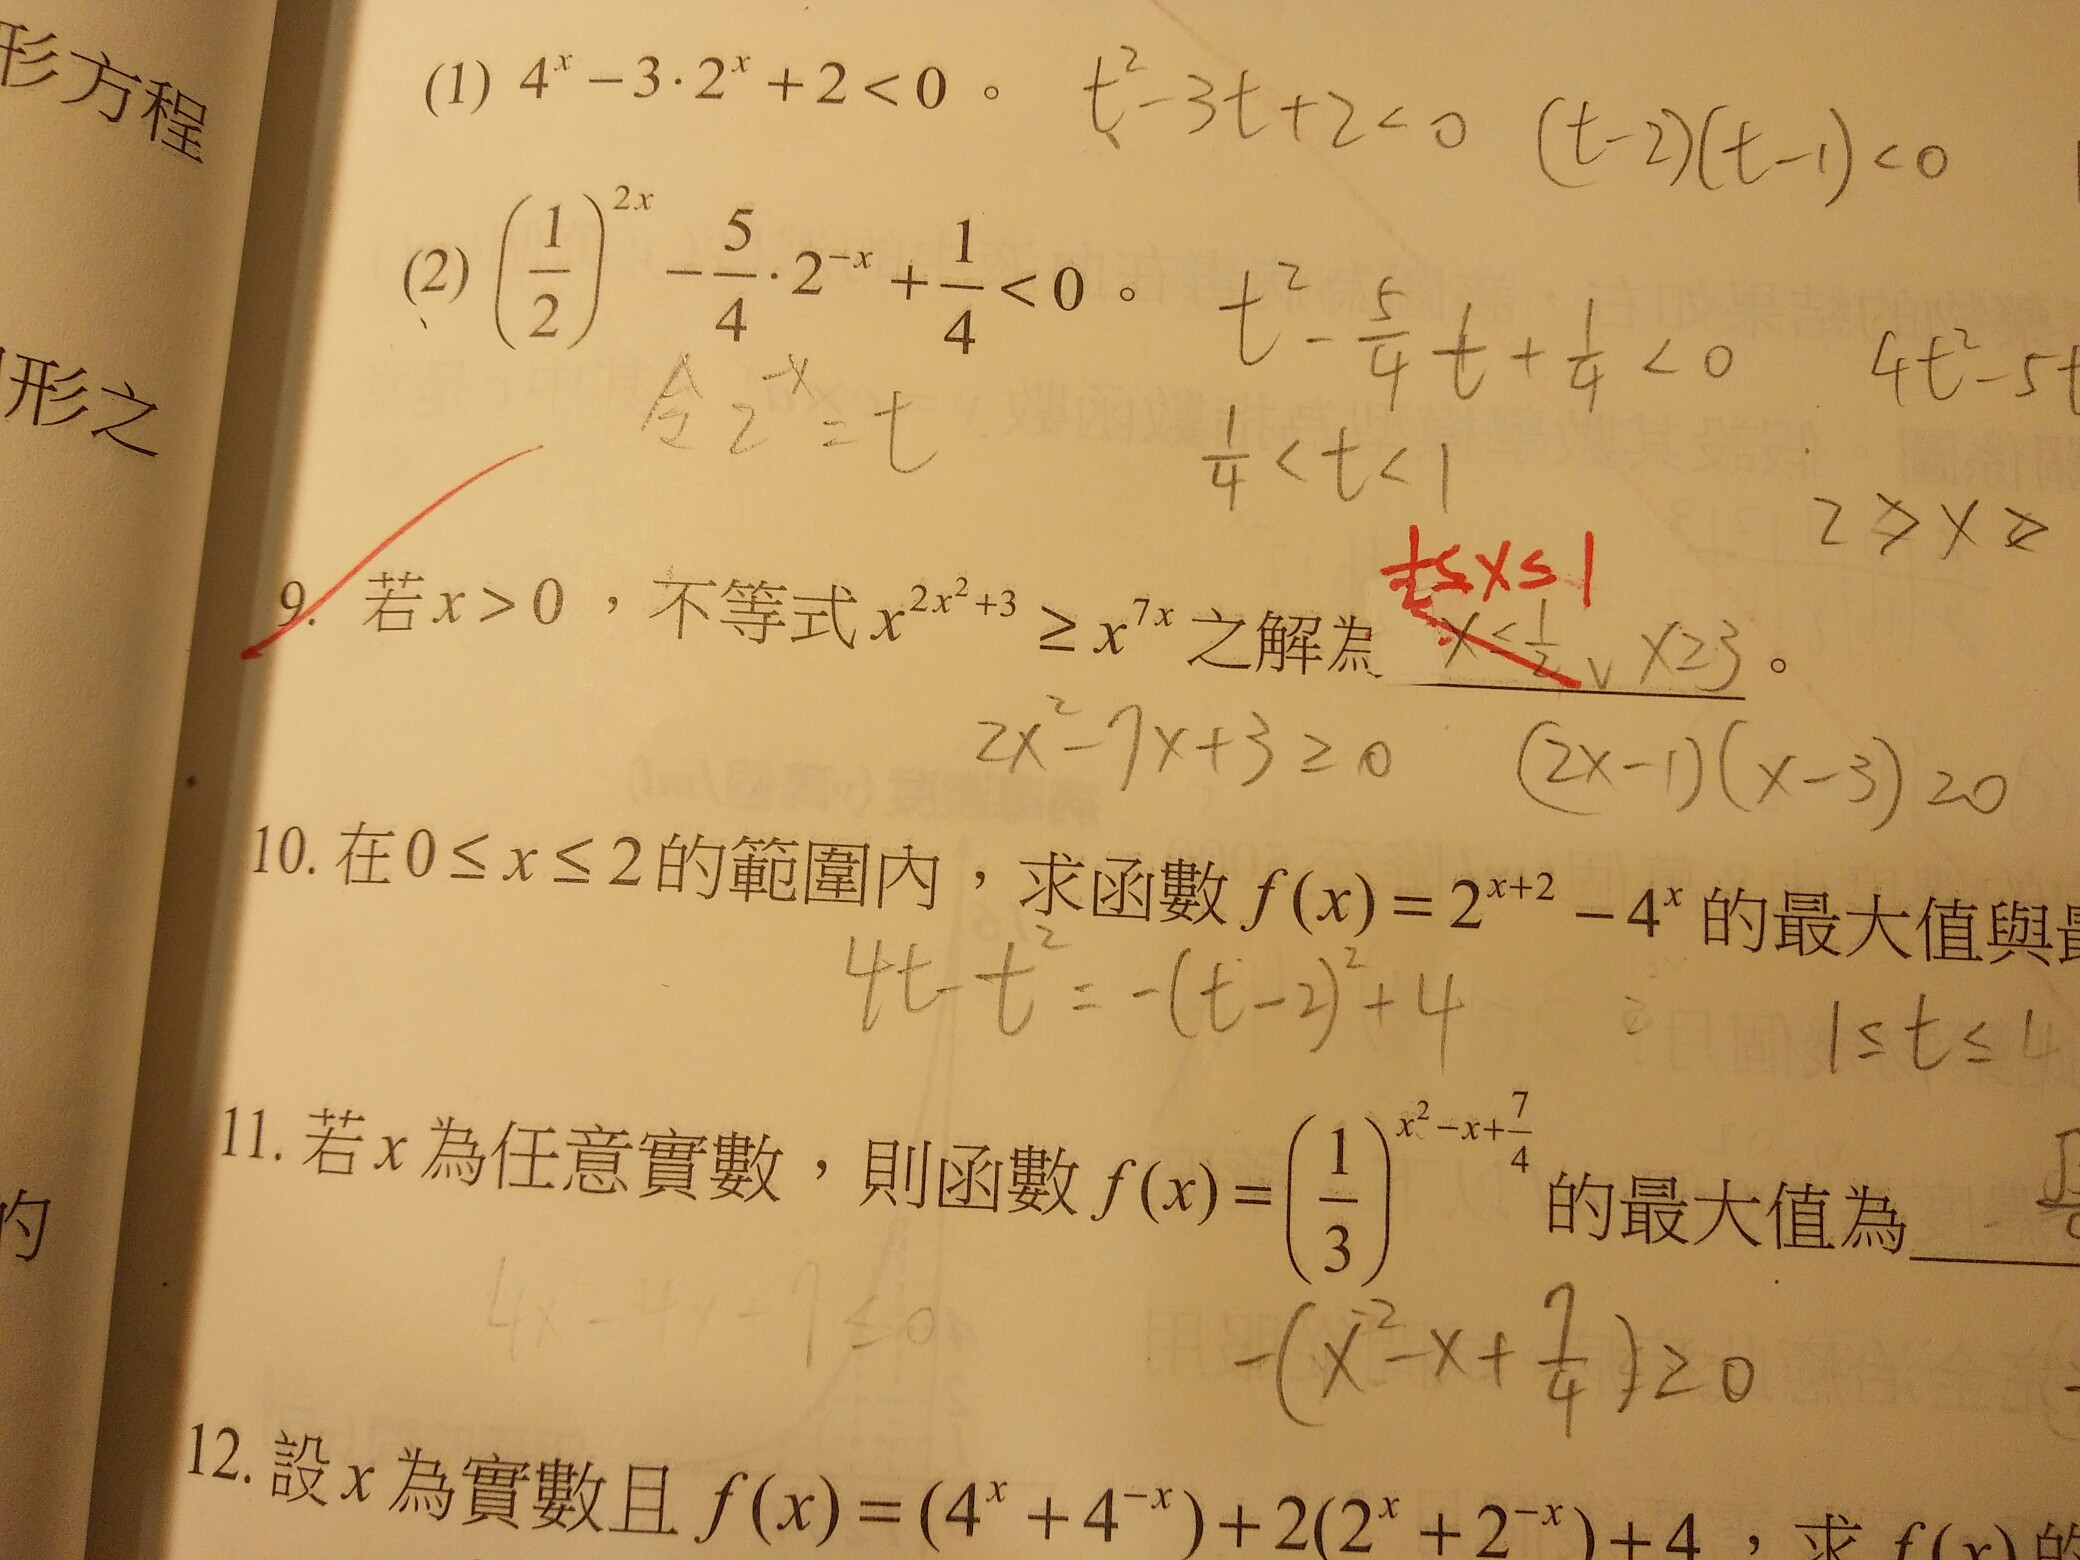 形方程
形之
的
(1) 4^x − 3·2^x + 2 < 0 。 t² − 3t + 2 < 0 (t−2)(t−1) < 0
(2) (1/2)^{2x} − 5/4 · 2^{−x} + 1/4 < 0 。 t² − 5/4 t + 1/4 < 0 4t² − 5t
令 2^{−x} = t 1/4 < t < 1
2 ≥ x ≥
≤ x ≤ 1
9. 若 x > 0 ，不等式 x^{2x²+3} ≥ x^{7x} 之解為 x < 1/2 ∨ x ≥ 3 。
2x² − 7x + 3 ≥ 0 (2x−1)(x−3) ≥ 0
10. 在 0 ≤ x ≤ 2 的範圍內，求函數 f(x) = 2^{x+2} − 4^x 的最大值與
4t − t² = −(t−2)² + 4 1 ≤ t ≤ 4
11. 若 x 為任意實數，則函數 f(x) = (1/3)^{x²−x+7/4} 的最大值為
4x² − 4x − 7 ≤ 0
−(x² − x + 7/4) ≥ 0
12. 設 x 為實數且 f(x) = (4^x + 4^{−x}) + 2(2^x + 2^{−x}) + 4 ，求 f(x) 的